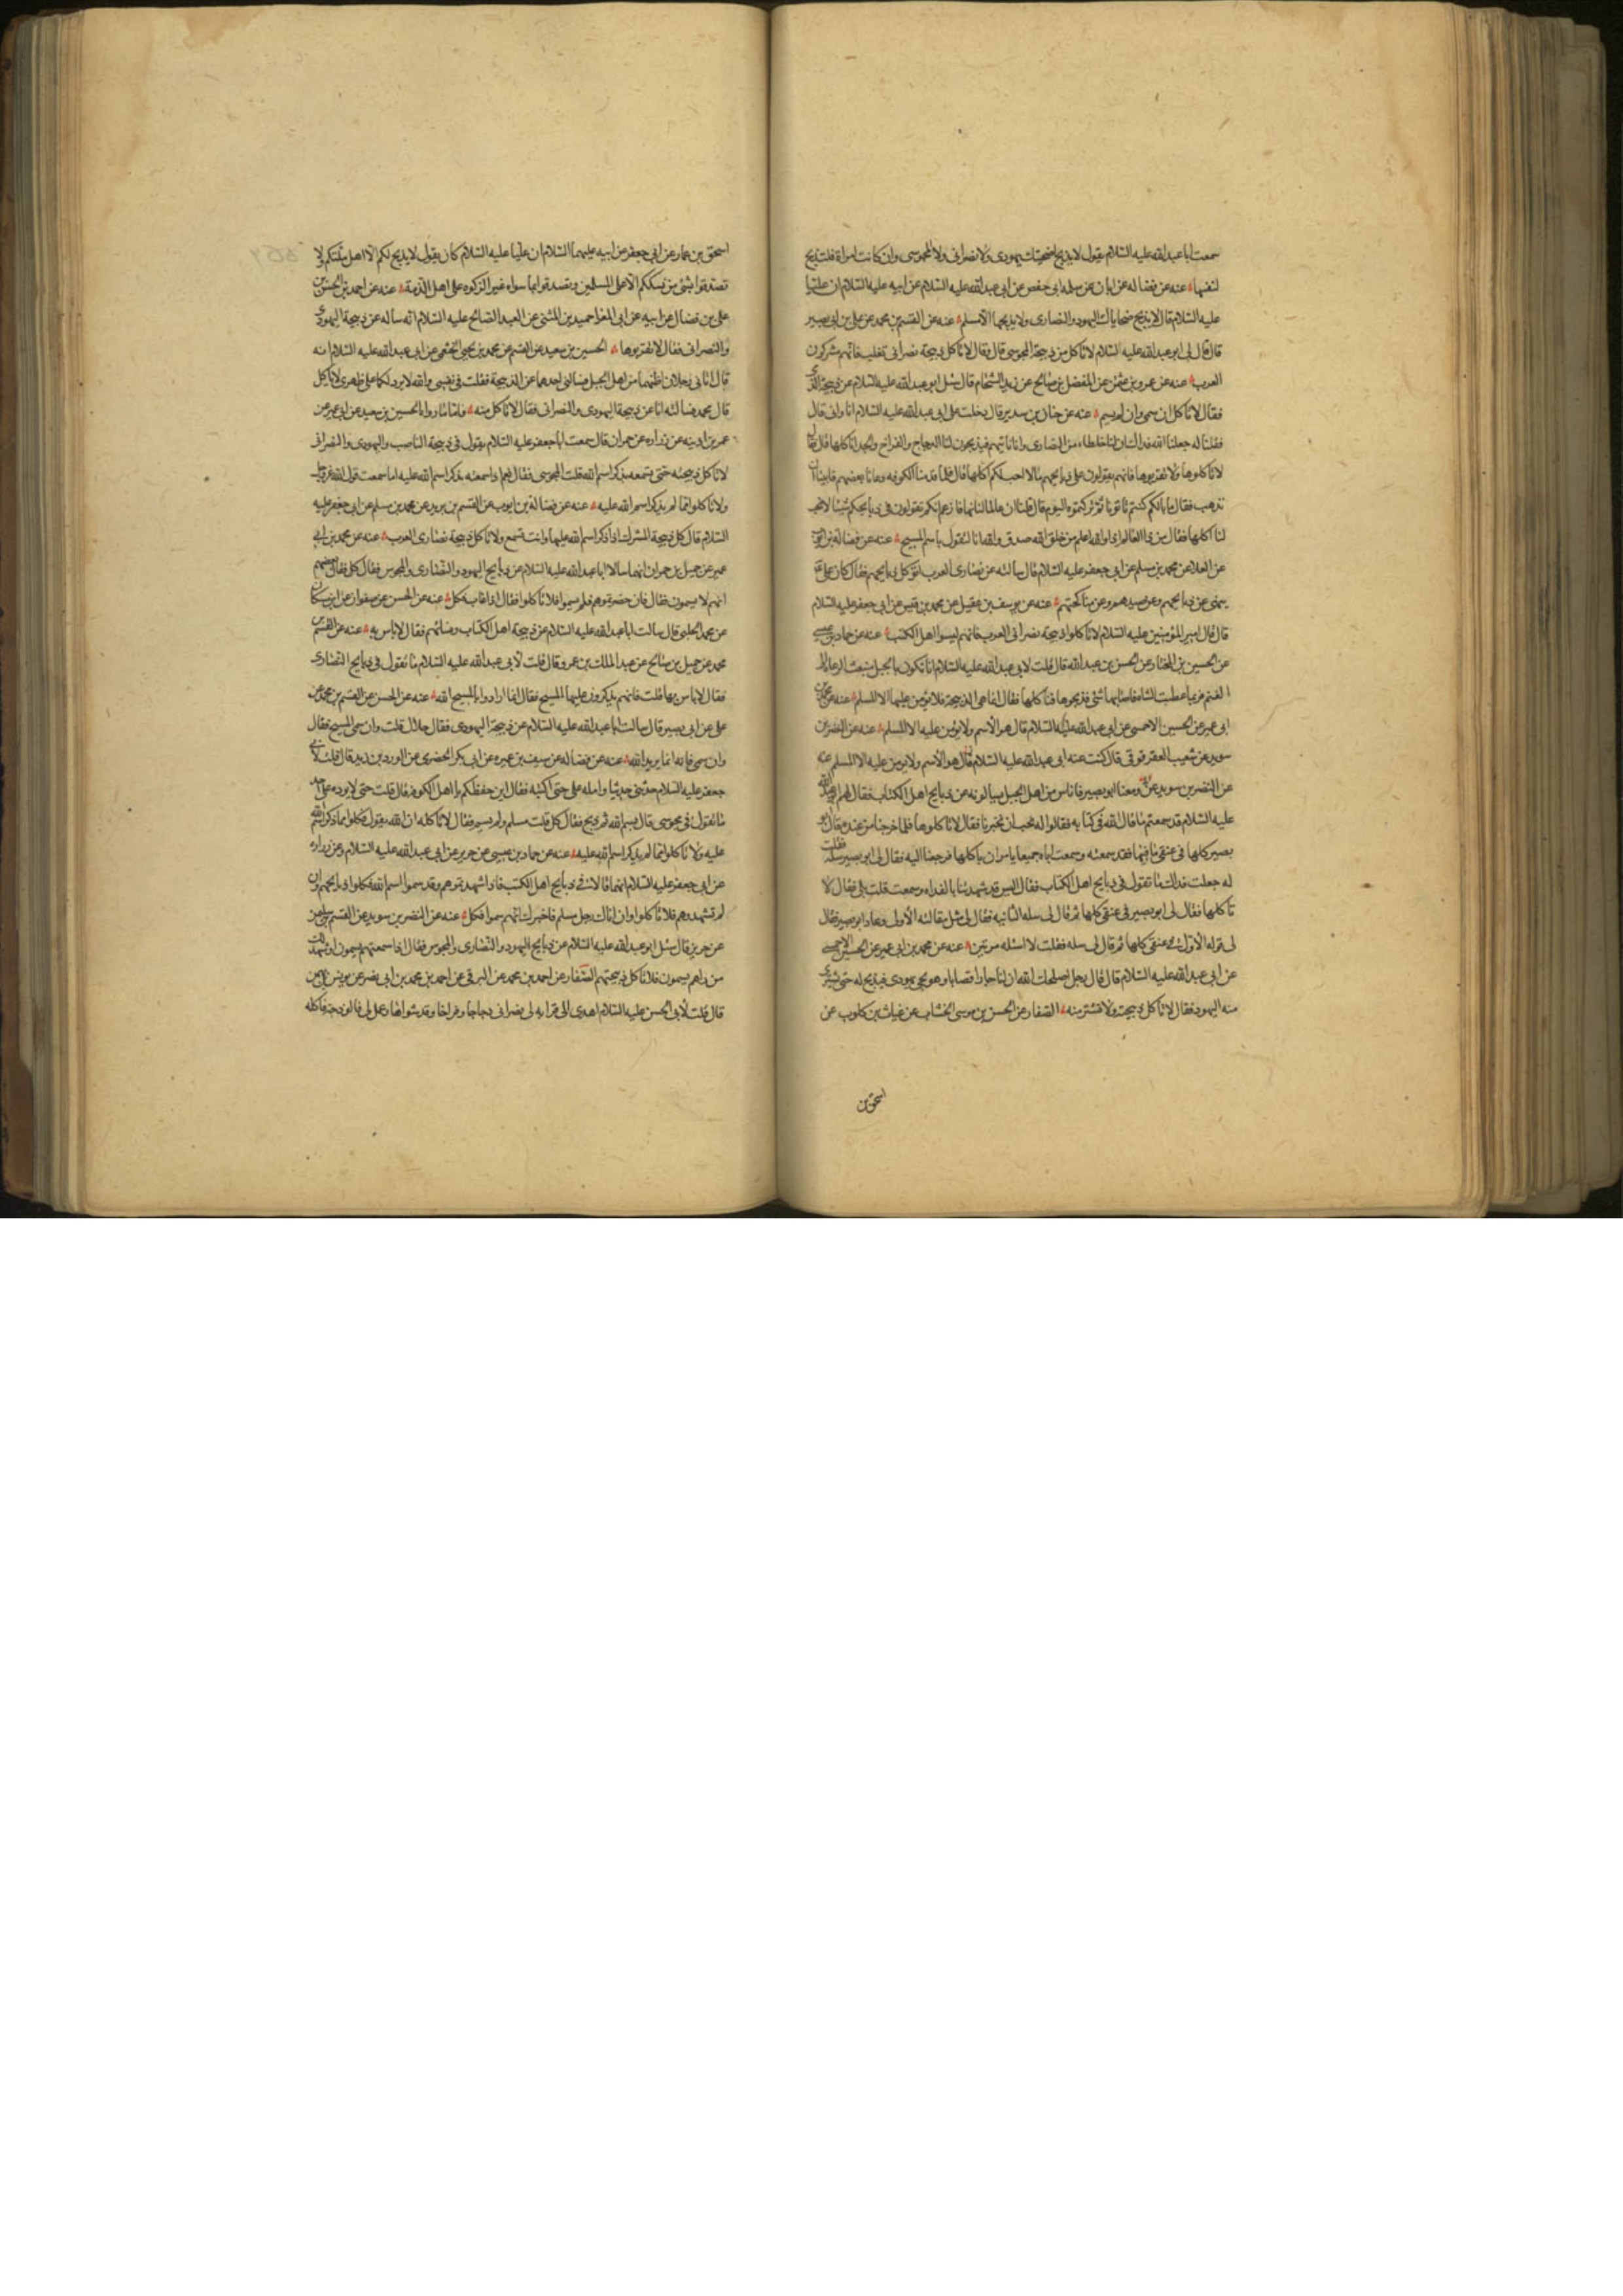 سمعت ابا عبد الله عليه السلام يقول لا يذبح اضحيتك يهودى ولا نصرانى ولا المجوسى وان كانت امراة فلتذبح
لنفسها عنه عن فضاله عن ابان عن سلمه ابى حفص عن ابى عبد الله عليه السلام عن ابيه عليه السلام ان عليا
عليه السلام قال لا يذبح ضحاياك اليهود والنصارى ولا يذبحها الا مسلم عنه عن القسم بن محمد عن على بن ابى بصير
قال قال لى ابو عبد الله عليه السلام لا تاكل من ذبيحة المجوسى قال وقال لا تاكل ذبيحة نصرانى تغلب فانهم مشركون
العرب عنه عن عمرو بن عثمن عن المفضل بن صالح عن زيد الشحام قال سئل ابو عبد الله عليه السلام عن ذبيحة الذمى
فقال لا تاكل ان سمى وان لم يسم عنه عن حنان بن سدير قال دخلت على ابى عبد الله عليه السلام انا وابى قال
فقلنا له جعلنا الله فداك ان لنا خلطاء من النصارى وانا ناتيهم فيذبحون لنا الدجاج والفراخ والجداء اناكلها قال فقال
لا تاكلوها ولا تقربوها فانهم يقولون على ذبايحهم مالا احب لكم اكلها قال فلما قدمنا الكوفه دعانا بعضهم فابينا ان
نذهب فقال ما بالكم كنتم تاتونا ثم تركتموه اليوم قال قلنا ان عالما لنا نهانا زعم انكم تقولون فى ذبايحكم شيئا لا يحب
لنا اكلها فقال من ذا العالم اذا والله اعلم من خلق الله صدق والله انا لنقول باسم المسيح عنه عن فضالة بن ايوب
عن العلا عن محمد بن مسلم عن ابى جعفر عليه السلام قال سالته عن نصارى العرب اتوكل ذبايحهم فقال كان على
ينهى عن ذبايحهم وعن صيدهم وعن مناكحتهم عنه عن يوسف بن عقيل عن محمد بن قيس عن ابى جعفر عليه السلام
قال قال امير المؤمنين عليه السلام لا تاكلوا ذبيحة نصرانى العرب فانهم ليسوا اهل الكتب عنه عن حماد بن عيسى
عن الحسين بن المختار عن الحسن بن عبد الله قال قلت لابى عبد الله عليه السلام انا نكون بالجبل فنبعث الرعاء الى
الغنم فربما عطبت الشاه فاصابها شئ فذبحوها فناكلها فقال انما هى الذبيحة فلا يؤمن عليها الا المسلم عنه عن محمد بن
ابى عمير عن الحسين الاحمسى عن ابى عبد الله عليه السلام قال هو الاسم ولا يؤمن عليه الا المسلم عنه عن النضر بن
سويد عن شعيب العقرقوفى قال كنت عند ابى عبد الله عليه السلام قال هو الاسم ولا يومن عليه الا المسلم عنه
عن النضر بن سويد عن ومعنا ابو بصير فاناس من اهل الجبل يسالونه عن ذبايح اهل الكتاب فقال لهم ابو عبد الله
عليه السلام قد سمعتم ما قال الله فى كتابه فقالوا له نحب ان تخبرنا فقال لا تاكلوها فلما خرجنا من عنده قال ابو
بصير كلها فى عنقى ما فيها فقد سمعته وسمعت اباه جميعا يامران باكلها فرجعنا اليه فقال لى ابو بصير سله فقلت
له جعلت فداك ما تقول فى ذبايح اهل الكتاب فقال اليس قد شهدتنا بالغداه وسمعت قلت بلى فقال لا
تاكلها فقال لى ابو بصير فى عنقى كلها ثم قال لى سله الثانيه فقال لى مثل مقالته الاولى وعاد ابو بصير فقال
لى قوله الاول فى عنقى كلها ثم قال لى سله فقلت لا اسئله مرتين عنه عن محمد بن ابى عمير عن الحسين الاحمسى
عن ابى عبد الله عليه السلام قال قال رجل اصلحك الله ان لنا جارا قصابا وهو يجى بيهودى فيذبح له حتى يشترى
منه اليهود فقال لا تاكل ذبيحته ولا تشتر منه الصفار عن الحسن بن موسى الخشاب عن غياث بن كلوب عن
اسحق بن
اسحق بن عمار عن ابى جعفر عن ابيه عليهما السلام ان عليا عليه السلام كان يقول لا يذبح لكم الا اهل ملتكم ولا
تصدقوا بشئ من نسككم الا على المسلمين وتصدقوا بما سواه غير الزكوه على اهل الذمة عنه عن احمد بن الحسن بن
على بن فضال عن ابيه عن ابى المغرا حميد بن المثنى عن العبد الصالح عليه السلام انه ساله عن ذبيحة اليهودى
والنصرانى فقال لا تقربوها الحسين بن سعيد عن القسم عن محمد بن يحيى الخثعمى عن ابى عبد الله عليه السلام انه
قال اتانى رجلان اظنهما من اهل الجبل فسالنى احدهما عن الذبيحة فقلت فى نفسى والله لا برد لكما على ظهرى لا تاكل
قال محمد فسالته انا عن ذبيحة اليهودى والنصرانى فقال لا تاكل منه فاما ما رواه الحسين بن سعيد عن ابى عمير عن
عمر بن اذينه عن زراره عن حمران قال سمعت ابا جعفر عليه السلام يقول فى ذبيحة الناصب واليهودى والنصرانى
لا تاكل ذبيحته حتى تسمعه يذكر اسم الله قلت المجوسى فقال نعم اذا سمعته يذكر اسم الله عليه اما سمعت قول الله عز وجل
ولا تاكلوا مما لم يذكر اسم الله عليه عنه عن فضالة بن ايوب عن القسم بن بريد عن محمد بن مسلم عن ابى جعفر عليه
السلام قال كل ذبيحة المشرك اذا ذكر اسم الله عليها وانت تسمع ولا تاكل ذبيحة نصارى العرب عنه عن محمد بن ابى
عمير عن جميل بن حمران انهما سالا ابا عبد الله عليه السلام عن ذبايح اليهود والنصارى والمجوس فقال كل فقال بعضهم
انهم لا يسمون فقال فان حضرتموهم فلم يسموا فلا تاكلوا فقال اذا غاب فكل عنه عن الحسن عن صفوان عن ابن مسكان
عن محمد الحلبى قال سالت ابا عبد الله عليه السلام عن ذبيحة اهل الكتاب ونسائهم فقال لا باس به عنه عن القسم بن
محمد عن جميل بن صالح عن عبد الملك بن عمرو قال قلت لابى عبد الله عليه السلام ما تقول فى ذبايح النصارى
فقال لا باس بها قلت فانهم يذكرون عليها المسيح فقال انما ارادوا بالمسيح الله عنه عن الحسن عن القسم بن محمد عن
على عن ابى بصير قال سالت ابا عبد الله عليه السلام عن ذبيحة اليهودى فقال حلال قلت وان سمى المسيح فقال
وان سمى فانه انما يريد الله عنه عن فضاله عن سيف بن عميره عن ابى بكر الحضرمى عن الورد بن زيد قال قلت لابى
جعفر عليه السلام حدثنى حديثا وامله على حتى اكتبه فقال اين حفظكم يا اهل الكوفه قال قلت حتى لا يرده على احد
ما تقول فى مجوسى قال بسم الله ثم ذبح فقال كل قلت مسلم ولم يسم فقال لا تاكله ان الله يقول فكلوا مما ذكر اسم الله
عليه ولا تاكلوا مما لم يذكر اسم الله عليه عنه عن حماد بن عيسى عن حريز عن ابى عبد الله عليه السلام وعن زراره
عن ابى جعفر عليه السلام انهما قالا فى ذبايح اهل الكتب فاذا شهدتموهم وقد سموا اسم الله فكلوا ذبايحهم وان
لم تشهدوهم فلا تاكلوا وان اتاك رجل مسلم فاخبرك انهم سموا فكل عنه عن النضر بن سويد عن القسم بن سليمن
عن حريز قال سئل ابو عبد الله عليه السلام عن ذبايح اليهود والنصارى والمجوس فقال اذا سمعتهم يسمون او شهد لك
من راهم يسمون فلا تاكل ذبيحتهم الصفار عن احمد بن محمد عن البرقى عن احمد بن محمد بن ابى نصر عن يونس بن
قال قلت لابى الحسن عليه السلام اهدى الى قرابه لى نصرانى دجاجا وفراخا وقد شواها وعمل لى فالوذجه فاكله